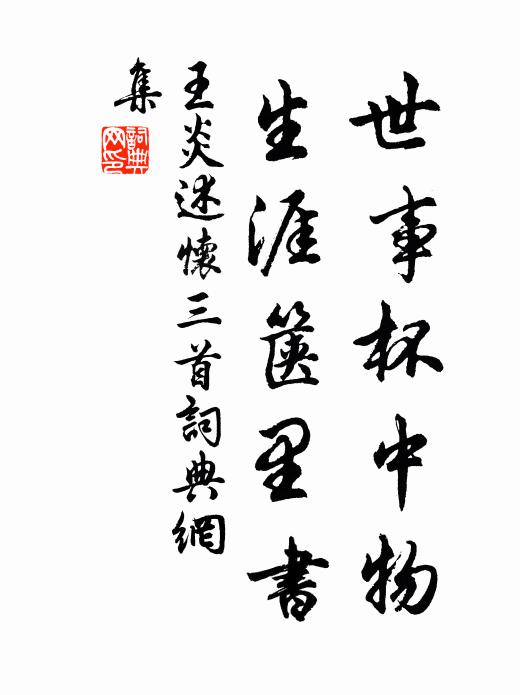 世事杯中物
生涯箧里書
王炎述懷三首詞典網
集
詞典网印